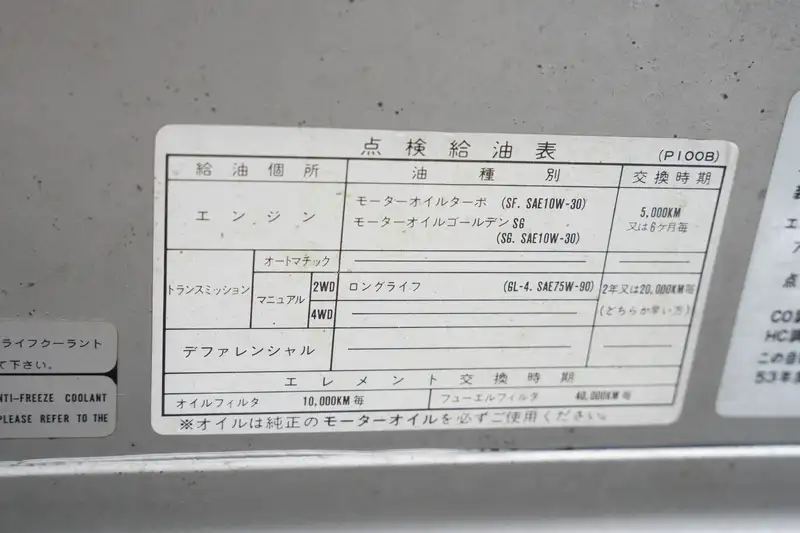 点検給油表
(P100B)
給油個所 油種別 交換時期
エンジン モーターオイルターボ (SF. SAE10W-30) 5,000KM
モーターオイルゴールデンSG 又は6ケ月毎
(SG. SAE10W-30)
トランスミッション オートマチック
マニュアル 2WD ロングライフ (GL-4. SAE75W-90) 2年又は20,000KM毎
4WD (どちらか早い方)
デファレンシャル
エレメント交換時期
オイルフィルタ 10,000KM毎 フューエルフィルタ 40,000KM毎
※オイルは純正のモーターオイルを必ずご使用ください。
ライフクーラント
て下さい。
NTI-FREEZE COOLANT
PLEASE REFER TO THE
エ
点
CO調
HC調
この自
53年度